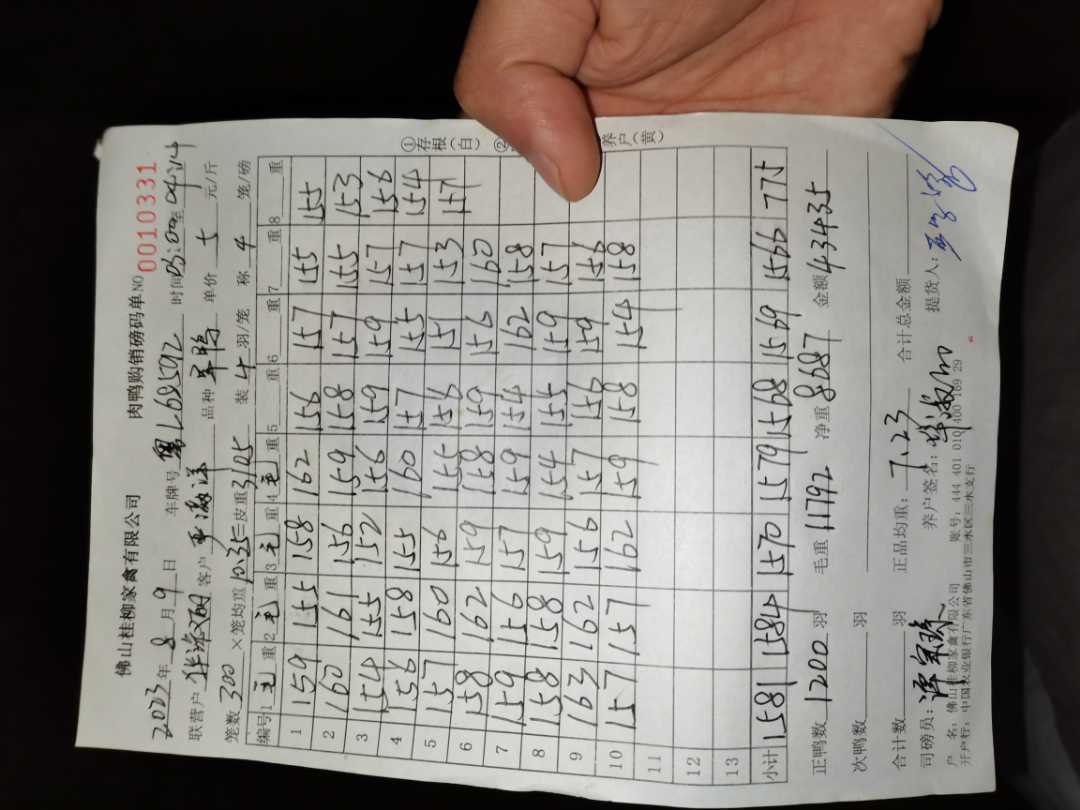 佛山桂柳家禽有限公司 肉鸭购销磅码单 NO 0010331
2023年 8 月 9 日 车牌号 粤L68592 时间 03:00 至 04:14
联营户 客户 品种 单价 5 元/斤
笼数 300 ×笼均重 10.35 =皮重 3105 装 4 羽/笼 称 4 笼/磅
编号 1 毛 重 2 毛 重 3 毛 重 4 毛 重 5 重 6 重 7 重 8 重
1 159 155 158 162 156 157 155 155
2 160 161 156 159 158 157 155 153
3 154 155 152 156 159 159 157 156
4 156 158 155 160 157 155 157 154
5 157 160 156 155 156 151 153 157
6 158 162 159 158 159 156 160
7 159 156 157 159 154 162 158
8 158 158 159 154 155 159 157
9 163 162 156 157 156 159 156
10 157 157 162 159 158 154 158
11
12
13
小计 1581 1584 1570 1579 1568 1569 1566 775
正鸭数 1200 羽 毛重 11792 净重 8687 金额 43435
次鸭数 羽
合计数 羽 正品均重: 7.23 合计总金额
司磅员: 养户签名: 提货人:
户 名: 佛山桂柳家禽有限公司 账号: 444 401 010 400 169 29
开户行: 中国农业银行广东省佛山市三水区三水支行
①存根(白) ②
养户(黄)